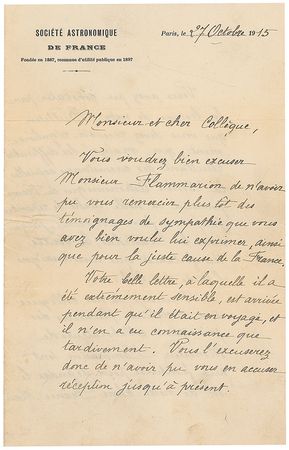 SOCIÉTÉ ASTRONOMIQUE
DE FRANCE
Fondée en 1887, reconnue d'utilité publique en 1897
Paris, le 27 Octobre 1915
Monsieur et cher Collègue,
Vous voudrez bien excuser
Monsieur Flammarion de n'avoir
pu vous remercier plus tôt des
témoignages de sympathie que vous
avez bien voulu lui exprimer, ainsi
que pour la juste cause de la France.
Votre belle lettre, à laquelle il a
été extrêmement sensible, est arrivée
pendant qu'il était en voyage, et
il n'en a eu connaissance que
tardivement. Vous l'excuserez
donc de n'avoir pu vous en accuser
réception jusqu'à présent.